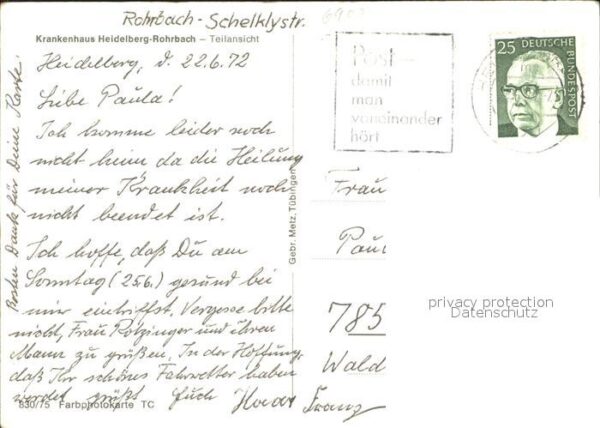 Rohrbach - Schelklystr.
Krankenhaus Heidelberg-Rohrbach – Teilansicht
Heidelberg, d. 22.6.72
Liebe Paula!
Ich komme leider noch
nicht heim da die Heilung
meiner Krankheit noch
nicht beendet ist.
Ich hoffe, daß Du am
Sonntag (25.6.) gesund bei
mir eintriffst. Vergesse bitte
nicht, Frau Rotzinger und ihren
Mann zu grüßen. In der Hoffnung,
daß Ihr schönes Fahrwetter haben
werdet grüßt Euch
Franz
Besten Dank für Deine Karte.
830/75 Farbphotokarte TC
Gebr. Metz, Tübingen
Post –
damit
man
voneinander
hört
25 DEUTSCHE
BUNDESPOST
Frau
Paul
785
Wald
privacy protection
Datenschutz